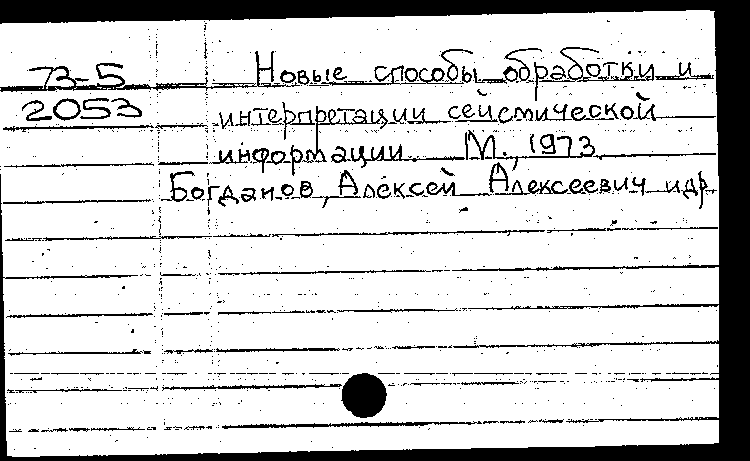 73-5
2053
Новые способы обработки и
интерпретации сейсмической
информации. М., 1973
Богданов, Алексей Алексеевич и др.